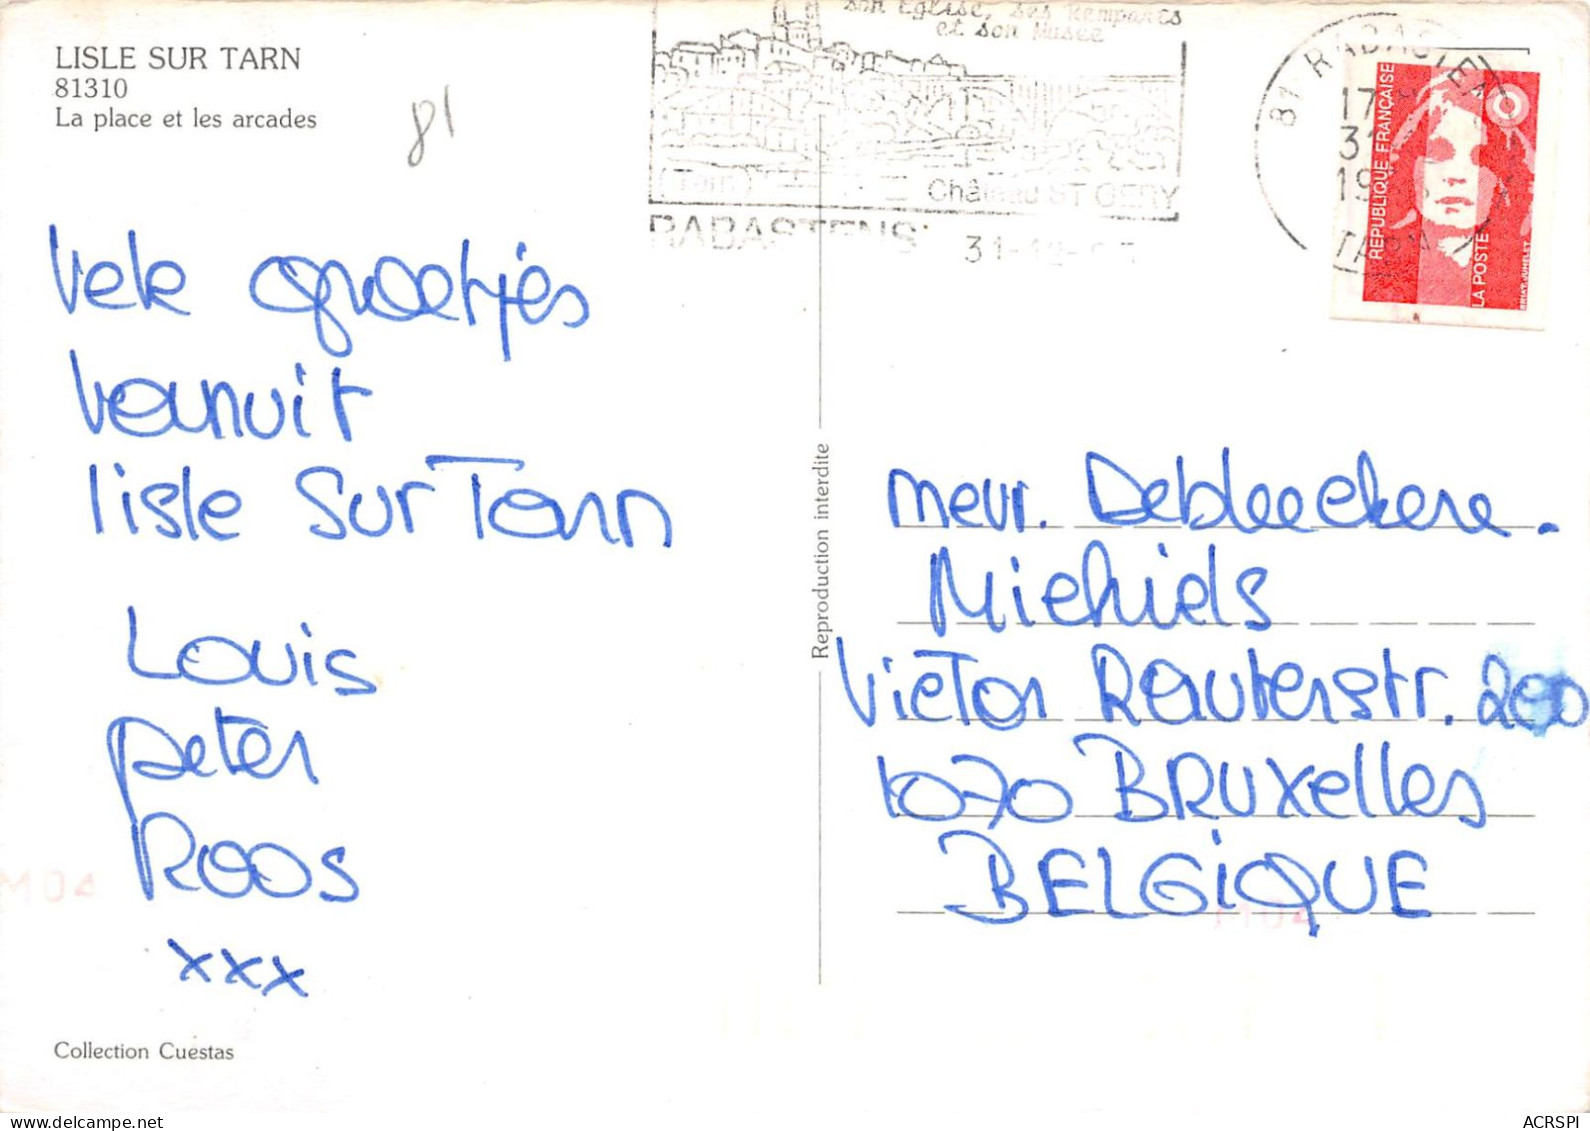 LISLE SUR TARN
81310
La place et les arcades
81
son Église, ses Remparts
et son Musée
(Tarn)
Château ST GERY
RABASTENS
81 RABASTENS
17
31
19
TARN
RÉPUBLIQUE FRANÇAISE
LA POSTE
Vele groetjes
vanuit
lisle sur Tarn
Louis
peter
Roos
xxx
Reproduction interdite
mevr. Debleeckere.
Michiels
Victor Rauterstr. 200
1070 BRUxelles
BELGIQUE
M04
M04
Collection Cuestas
ACRSPI